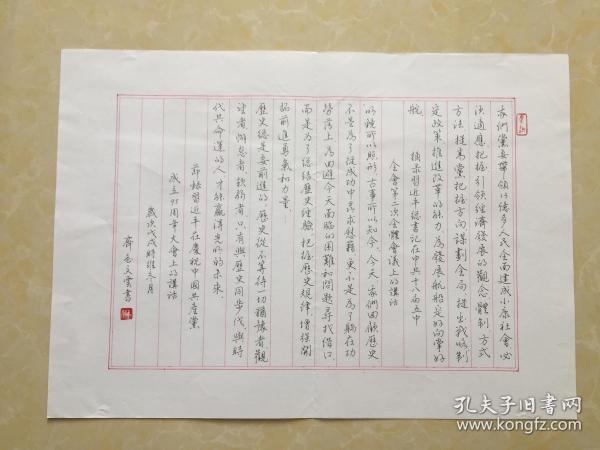 我們黨要帶領以億多人民全面建成小康社會必
須適應把握引領經濟發展的觀念體制方式
方法提高黨把握方向謀劃全局提出戰略制
定政策推進改革的能力為發展航船定好向掌好
舵
摘录習近平總書記在中共十八屆五中
全會第二次全體會議上的講話
以鏡可以照形古事可以知今今天我們回顧歷史
不是為了從成功中尋求慰藉更不是為了躺在功
勞簿上為回避今天面臨的困難和問題尋找借口
而是為了總結歷史經驗把握歷史規律增強開
拓前進勇氣和力量
歷史總是要前進的歷史從不等待一切猶豫者觀
望者懈怠者軟弱者只有與歷史同步伐與時
代共命運的人才能贏得光明的未來
節録習近平在慶祝中國共產黨
成立95周年大會上的講話
歲次戊戌時維冬月
齊文雲書
孔夫子旧書网
www.kongfz.com